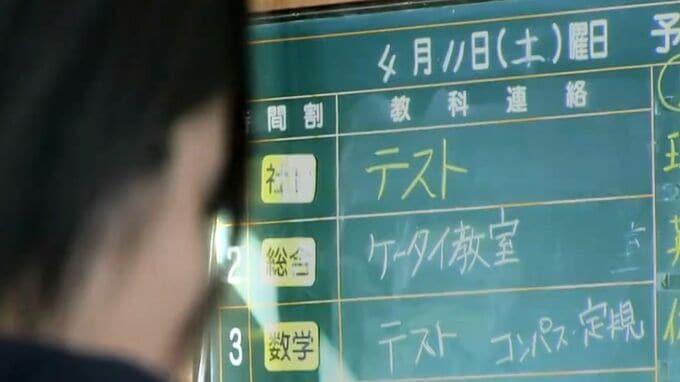 4月11日(土)曜日 予
間割 教科連絡
テスト
2 総合 ケータイ教室
3 数学 テスト コンパス・定規